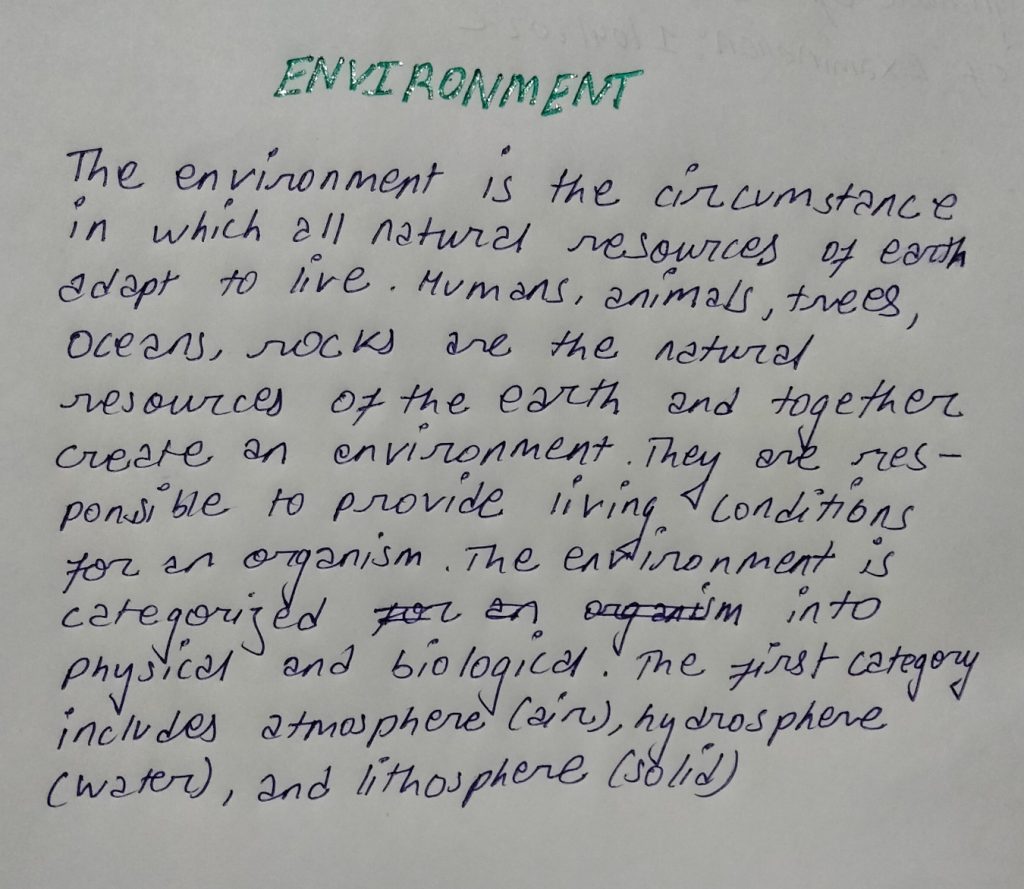 ENVIRONMENT
The environment is the circumstance
in which all natural resources of earth
adapt to live. Humans, animals, trees,
oceans, rocks are the natural
resources of the earth and together
create an environment. They are res-
ponsible to provide living conditions
for an organism. The environment is
categorized for an organism into
physical and biological. The first category
includes atmosphere (air), hydrosphere
(water), and lithosphere (solid)